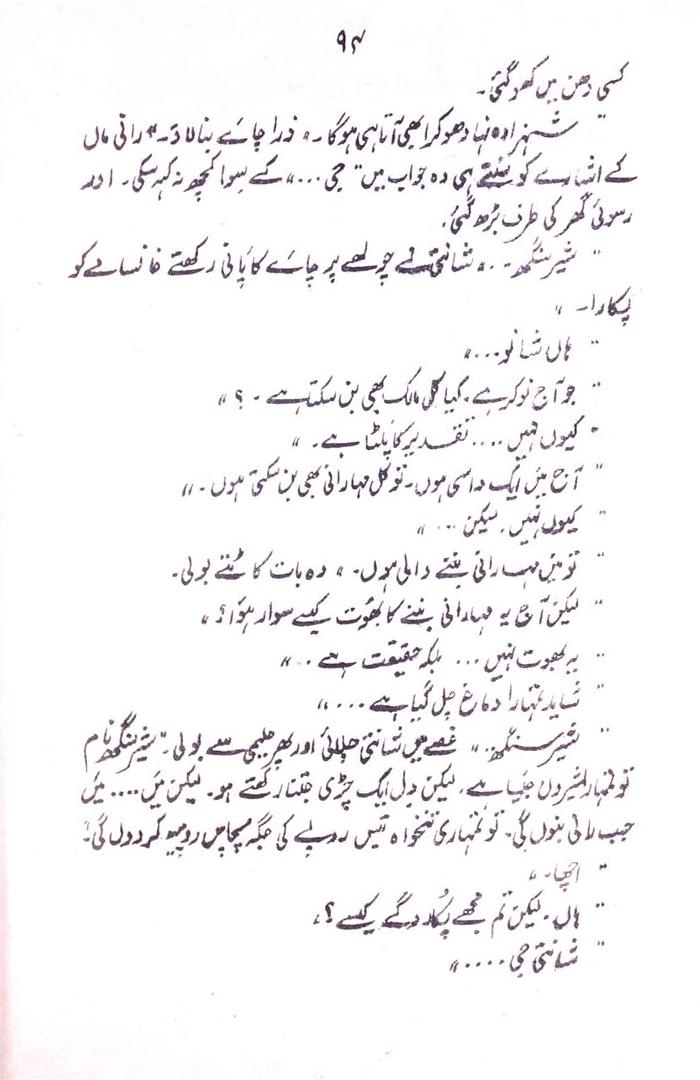 ۹۴
کسی دھن میں کھو گئی۔
"شہزادہ نہا دھو کر ابھی آتا ہی ہوگا۔" ذرا چائے بنا لاؤ۔" رانی ماں
کے اشارے کو سُنتے ہی وہ جواب میں "جی ..." کے سِوا کچھ نہ کہہ سکی۔ اور
رسوئی گھر کی طرف بڑھ گئی۔
"شیر سنگھ ..." شانتی نے چولھے پر چائے کا پانی رکھتے خانسامے کو
پکارا۔"
"ہاں شانو ..."
"جو آج نوکر ہے، کیا کل مالک بھی بن سکتا ہے۔؟"
"کیوں نہیں .... تقدیر کا پلٹا ہے۔"
"آج میں ایک داسی ہوں۔ تو کل مہارانی بھی بن سکتی ہوں۔"
"کیوں نہیں۔ لیکن ..."
"تو میں مہارانی بننے والی ہوں۔" وہ بات کاٹتے بولی۔
"لیکن آج یہ مہارانی بننے کا بھُوت کیسے سوار ہُوا؟"
"یہ بھوت نہیں ... بلکہ حقیقت ہے .."
"شاید تمہارا دماغ چل گیا ہے ...."
"شیر سنگھ .." غصے میں شانتی چلائی اور پھر حلیمی سے بولی۔ "شیر سنگھ نام
تو تمہارا شیروں جیسا ہے، لیکن دِل ایک چڑی جتنا رکھتے ہو۔ لیکن میں .... میں
جب رانی بنوں گی۔ تو تمہاری تنخواہ تیس روپے کی جگہ پچاس روپیہ کر دوں گی۔"
"اچھا۔"
"ہاں۔ لیکن تم مجھے پُکارو گے کیسے؟"
"شانتی جی ...."